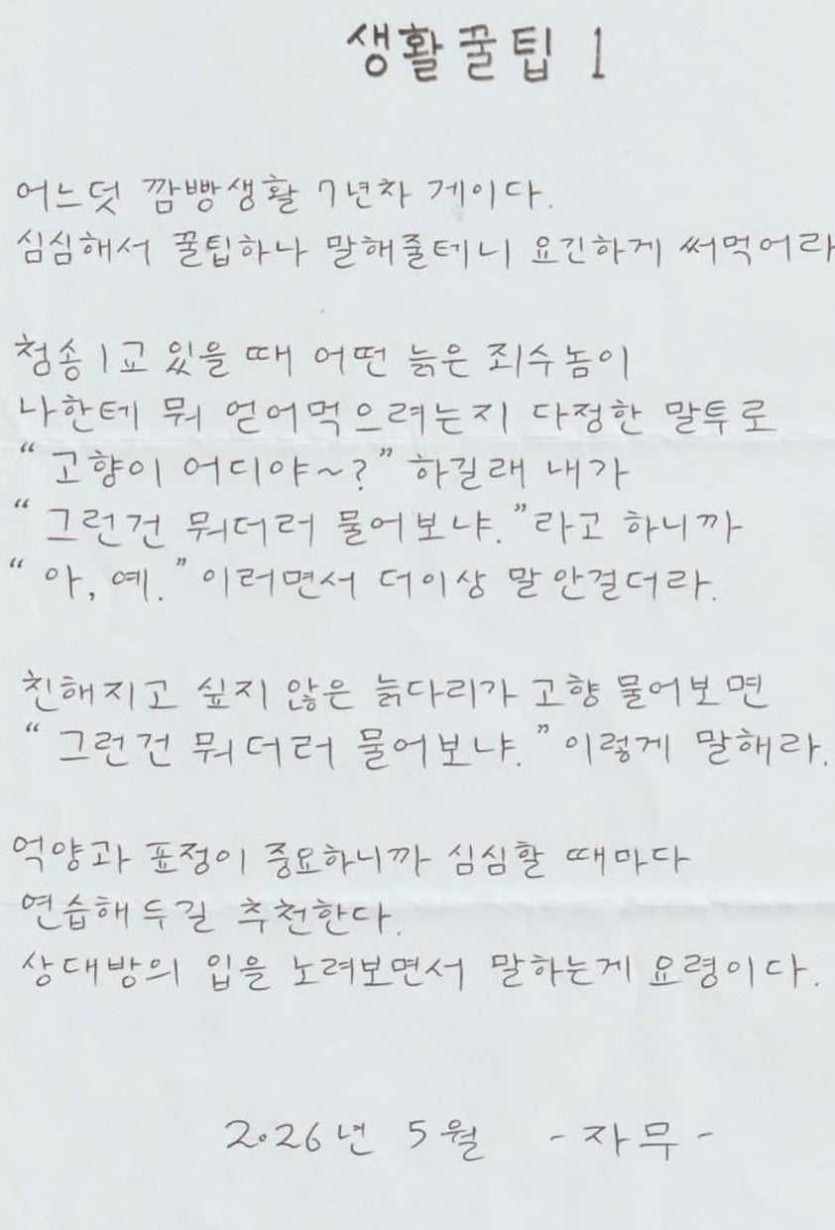 생활꿀팁 1
어느덧 깜빵생활 7년차 게이다.
심심해서 꿀팁하나 말해줄테니 요긴하게 써먹어라
청송1교 있을 때 어떤 늙은 죄수놈이
나한테 뭐 얻어먹으려는지 다정한 말투로
"고향이 어디야~?" 하길래 내가
"그런건 뭐더러 물어보냐."라고 하니까
"아, 예." 이러면서 더이상 말 안걸더라.
친해지고 싶지 않은 늙다리가 고향 물어보면
"그런건 뭐더러 물어보냐." 이렇게 말해라.
억양과 표정이 중요하니까 심심할 때마다
연습해두길 추천한다.
상대방의 입을 노려보면서 말하는게 요령이다.
2026년 5월 -자무-